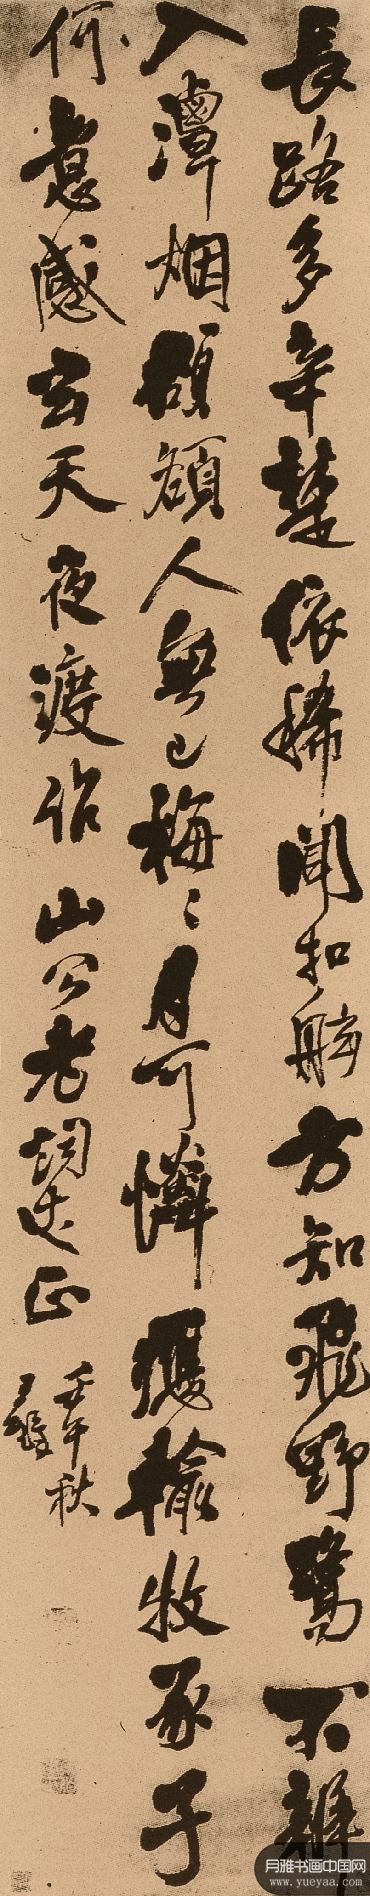 長路多辛楚依稀聞扣舷方知飛野鷺不離
入潭烟領額人無已梅〻月可憐獲輸牧豕子
何意感玄天夜渡作山公老詞丈正
壬午秋
月雅书画中国网
www.yueyaa.com